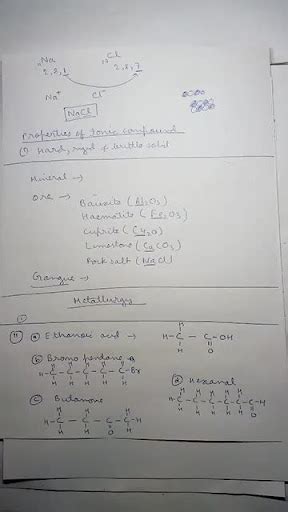 ₁₁Na ₁₇Cl
2,8,1 2,8,7
Na⁺ Cl⁻
NaCl
Properties of Ionic compound
(1) Hard, rigid & brittle solid
Mineral →
Ore → Bauxite (Al₂O₃)
Haematite (Fe₂O₃)
Cuprite (Cu₂O)
Limestone (CaCO₃)
Rock salt (NaCl)
Gangue →
Metallurgy
(a) Ethanoic acid → H-C-C-OH
H
H
O
(b) Bromo pentane →
H H H H H
H-C-C-C-C-C-Br
H H H H H
(d) Hexanal
H H H H H
H-C-C-C-C-C-C-H
H H H H H O
(c) Butanone
H H H
H-C-C-C-C-H
H H O H